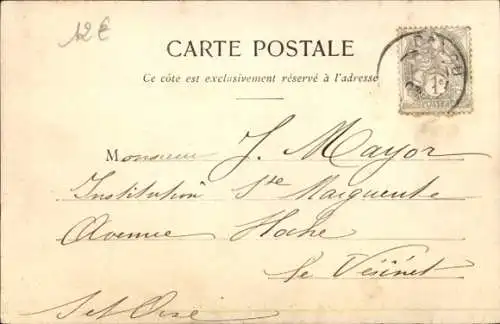 12€
CARTE POSTALE
Ce côté est exclusivement réservé à l'adresse
1c
POSTES
Monsieur J. Mayor
Institution Ste Marguerite
Avenue Hoche
Le Vésinet
S et Oise